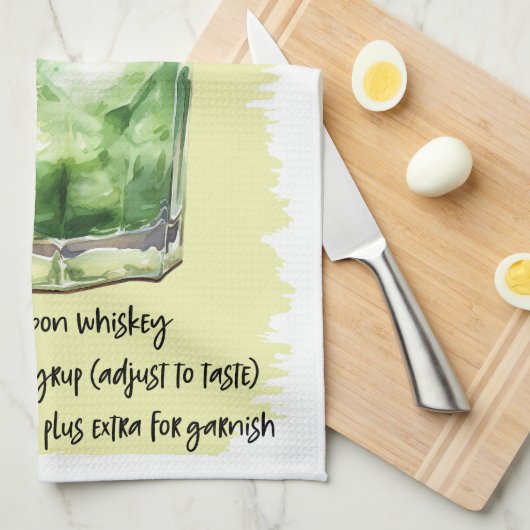 whiskey
(adjust to taste)
plus extra for garnish